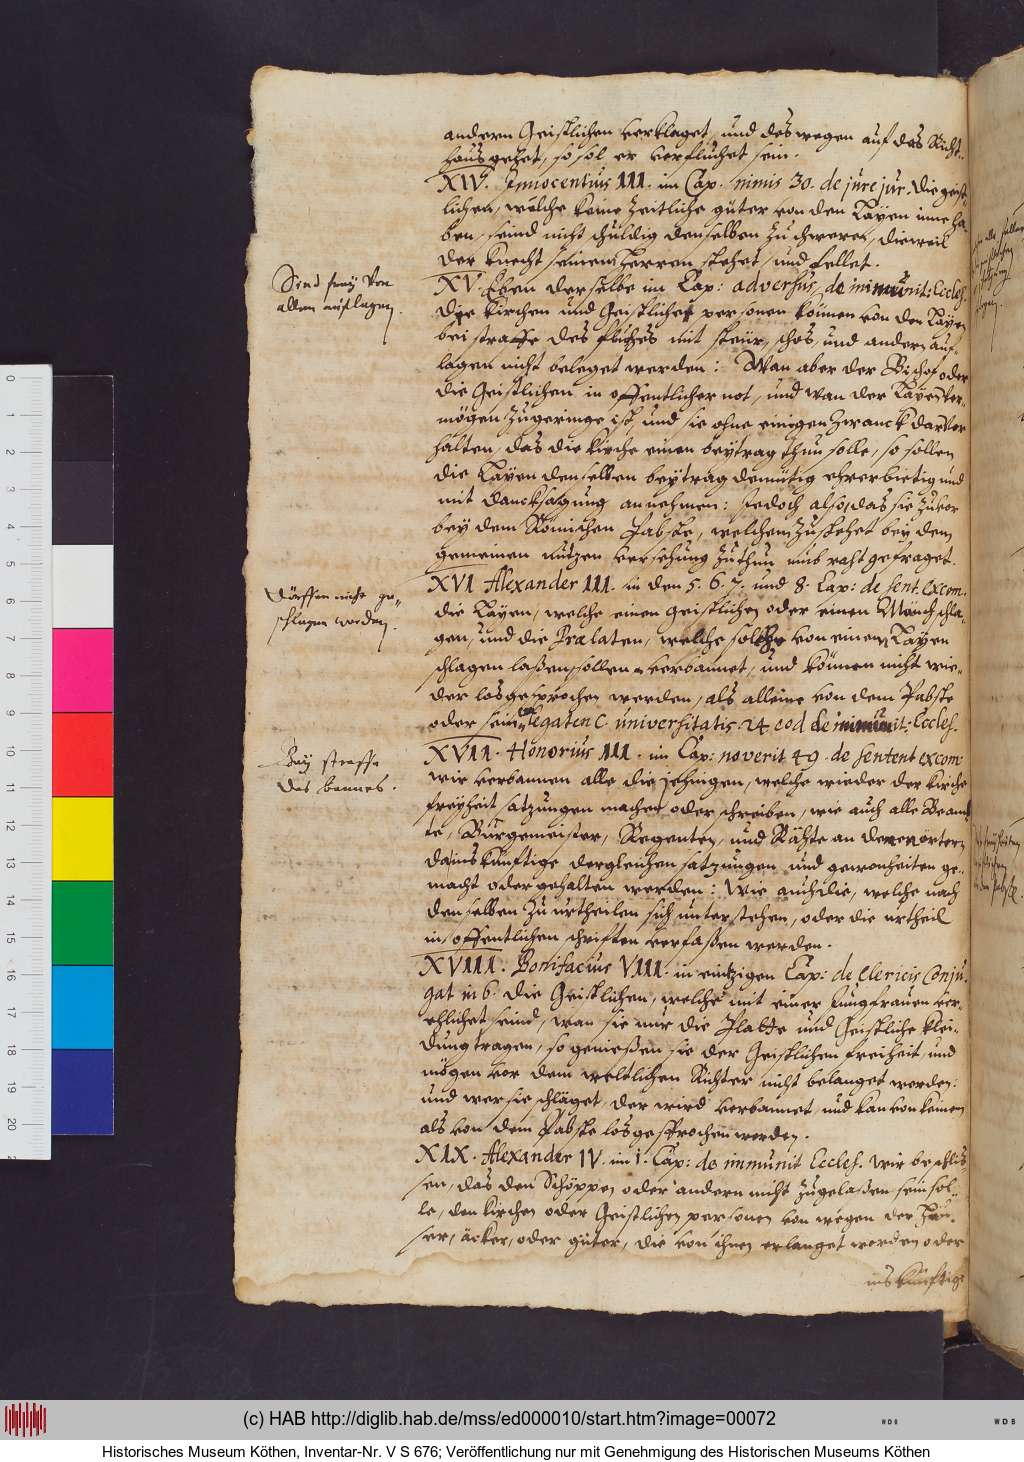 andern Geistlichen verklaget, und deswegen auf das Richt-
haus gehet, so sol er verfluchet sein.
XIV. Innocentius III. im Cap. nimis 30. de jurejur. Die geist-
lichen, welche keine Zeitliche güter von den Layen inne ha-
ben, seind nicht schuldig denselben zu schweren, dieweil
der knecht seinem Herren stehet, und fellet.
Sind frey von
allen aufflagen.
XV. Eben derselbe im Cap: adversus, de immunit: Eccles.
Die Kirchen und Geistliche personen können von den Layen
bei straffe des fluches mit steür, schos, und andern auf-
lagen nicht beleget werden: Wan aber der Bischof oder
die Geistlichen in offentlicher not, und wan der Layen ver-
mögen zu geringe ist, und sie ohne einigen Zwanck darvor
halten, das die kirche einen beytrag thun solle, so sollen
die Layen denselben beytrag demütig ehrerbietig und
mit dancksagung annehmen: Jedoch also, das sie zuvor
bey dem Römischen Pabste, welchem zustehet bey dem
gemeinen nutzen versehung zuthun umb raht gefraget.
Dörffen nicht ge-
schlagen werden.
XVI Alexander III. in den 5. 6. 7. und 8. Cap: de sent. Excom.
die Layen, welche einen geistlichen oder einen Münch schla-
gen, und die Prælaten, welche solche von einem Layen
schlagen laßen, sollen verbannet, und können nicht wie-
der losgesprochen werden, als alleine von dem Pabste
oder seinen Legaten C. universitatis. 24 eod de immunit: Eccles.
Bey straffe
des bannes.
XVII. Honorius III. im Cap: noverit 49. de sentent excom
wir verbannen alle die jehnigen, welche wieder der kirche
freyheit satzungen machen oder schreiben, wie auch alle Beam-
te, Bürgemeister, Regenten, und Rähte an denen örtern
da ins künftige dergleichen satzungen und gewonheiten ge-
macht oder gehalten werden: Wie auch die, welche nach
denselben zu urtheilen sich unterstehen, oder die urtheil
in offentlichen schriften verfaßen werden.
XVIII. Bonifacius VIII. in eintzigen Cap: de Clericis Conju-
gat in 6. die Geistlichen, welche mit einer Jungfrauen ver-
ehlichet seind, wan sie nur die Platte und Geistliche klei-
dung tragen, so genießen sie der Geistlichen freiheit, und
mögen vor dem weltlichen Richter nicht belanget werden:
und wer sie schläget, der wird verbannet, und kan von keinem
als von dem Pabste losgesprochen werden.
XIX. Alexander IV. im 1. Cap: de immunit Eccles. wir beschlüs-
sen, das den Schöppen oder andern nicht zugelaßen sein sol-
le, den kirchen oder Geistlichen personen von wegen der Häu-
ser, äcker, oder güter, die von ihnen erlanget worden oder
ins künftige
(c) HAB http://diglib.hab.de/mss/ed000010/start.htm?image=00072
Historisches Museum Köthen, Inventar-Nr. V S 676; Veröffentlichung nur mit Genehmigung des Historischen Museums Köthen